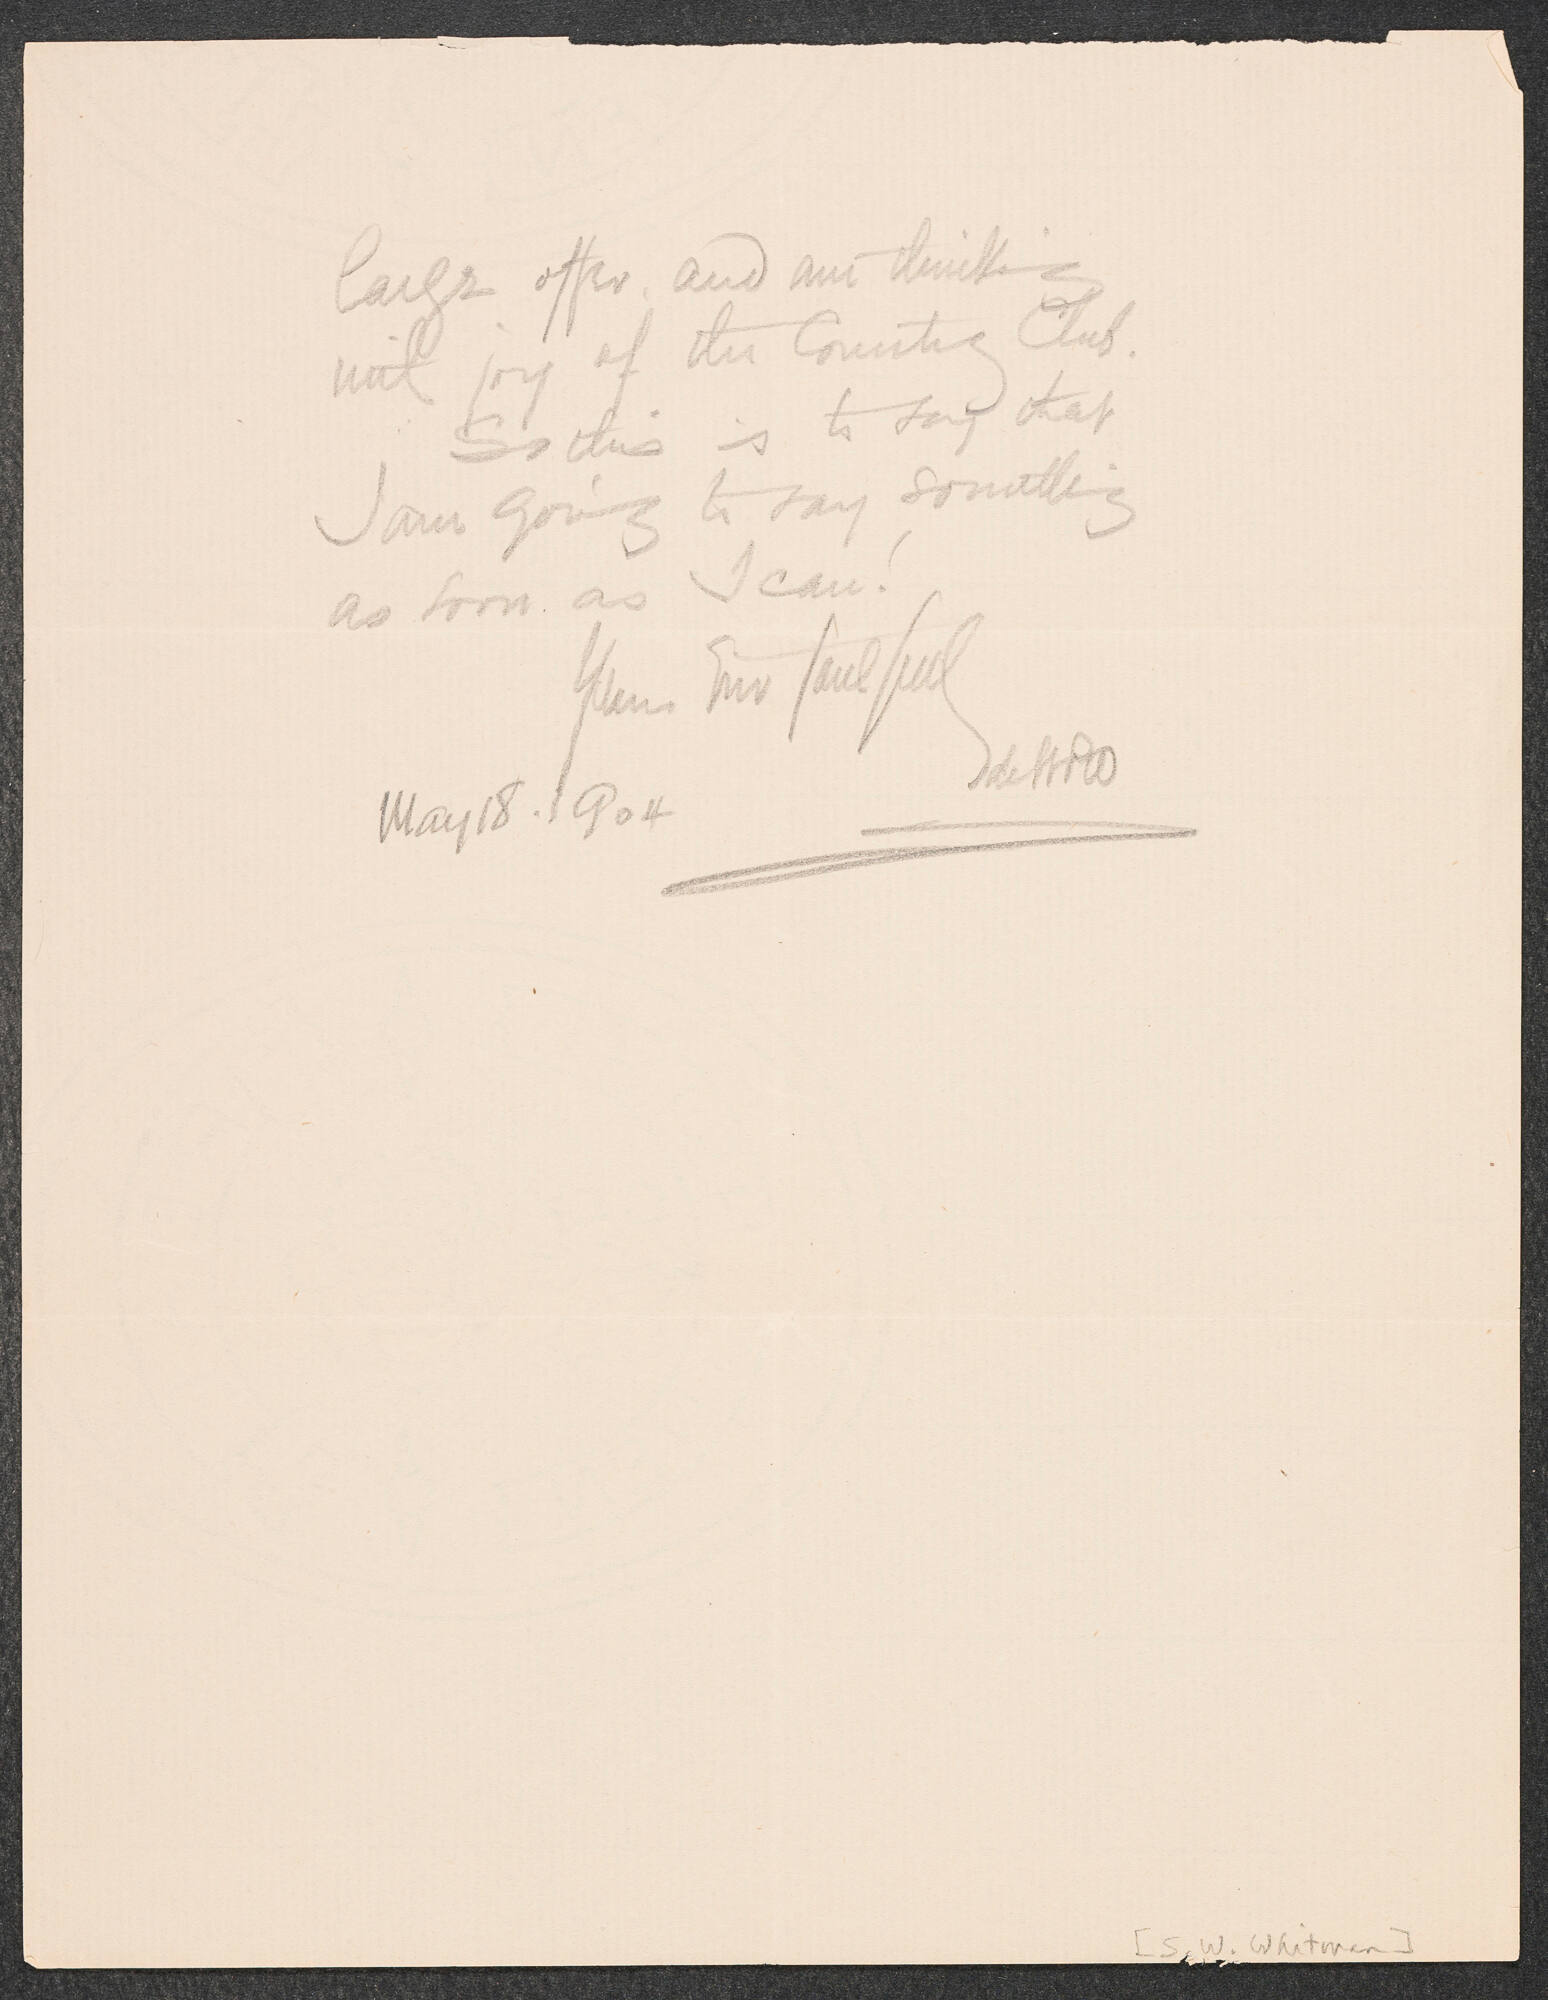 large offer. and am thinking
with joy of the Country Club.
So this is to say that
I am going to say something
as soon as I can!
Yours
May 18. 1904
[S. W. Whitman]